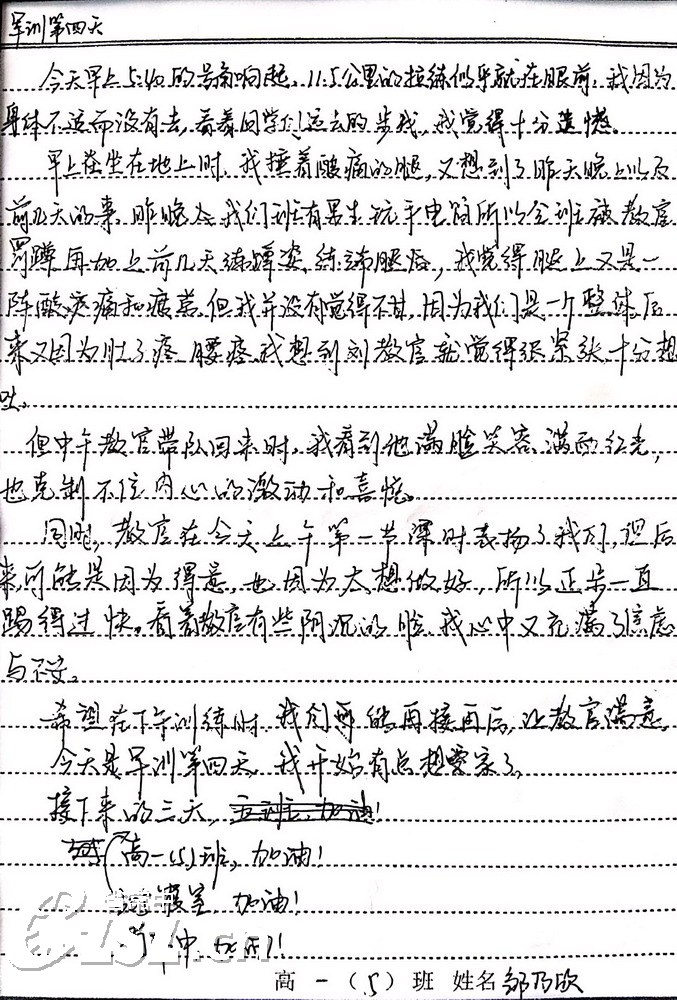 军训第四天
今天早上5:40的号角响起，11.5公里的拉练似乎就在眼前，我因为
身体不适而没有去，看着同学们远去的步伐，我觉得十分遗憾。
早上在坐在地上时，我捶着酸痛的腿，又想到了昨天晚上以及
前几天的事，昨晚我们班有男生玩手电筒所以全班被教官
罚蹲再加上前几天练蹲姿，练踢腿后，我觉得腿上又是一
阵酸疼痛和疲惫但我并没有觉得不甘，因为我们是一个整体后
来又因为肚子疼，腰疼我想到刘教官就觉得很紧张，十分想
吐。
但中午教官带队回来时，我看到他满脸笑容，满面红光，
也克制不住内心的激动和喜悦。
同时，教官在今天上午第一节课时表扬了我们，但后
来可能是因为得意，也因为太想做好，所以正步一直
踢得过快。看着教官有些阴沉的脸，我心中又充满了焦虑
与不安。
希望在下午训练时，我们都能再接再厉，让教官满意。
今天是军训第四天，我开始有点想家了。
接下来的三天，五班，加油！
高一（5）班，加油！
寝室，加油！
中，加油！
高一（5）班 姓名 邹乃欣